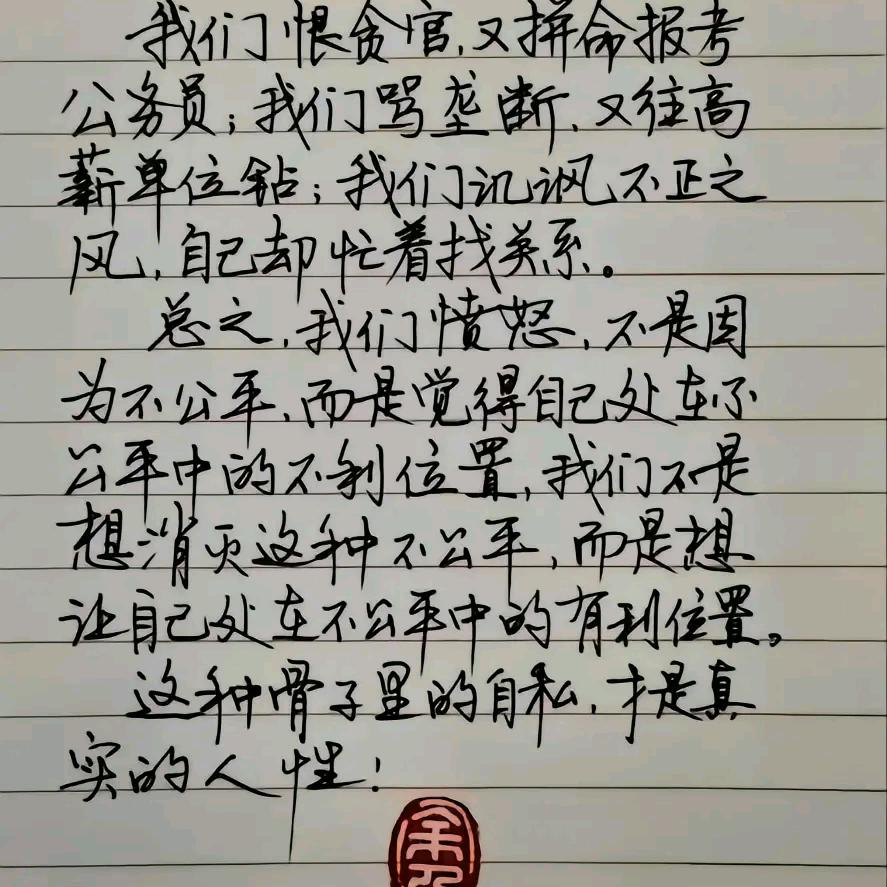 我们恨贪官,又拼命报考
公务员;我们骂垄断,又往高
薪单位钻;我们讥讽不正之
风,自己却忙着找关系。
总之,我们愤怒,不是因
为不公平,而是觉得自己处在不
公平中的不利位置,我们不是
想消灭这种不公平,而是想
让自己处在不公平中的有利位置。
这种骨子里的自私,才是真
实的人性!